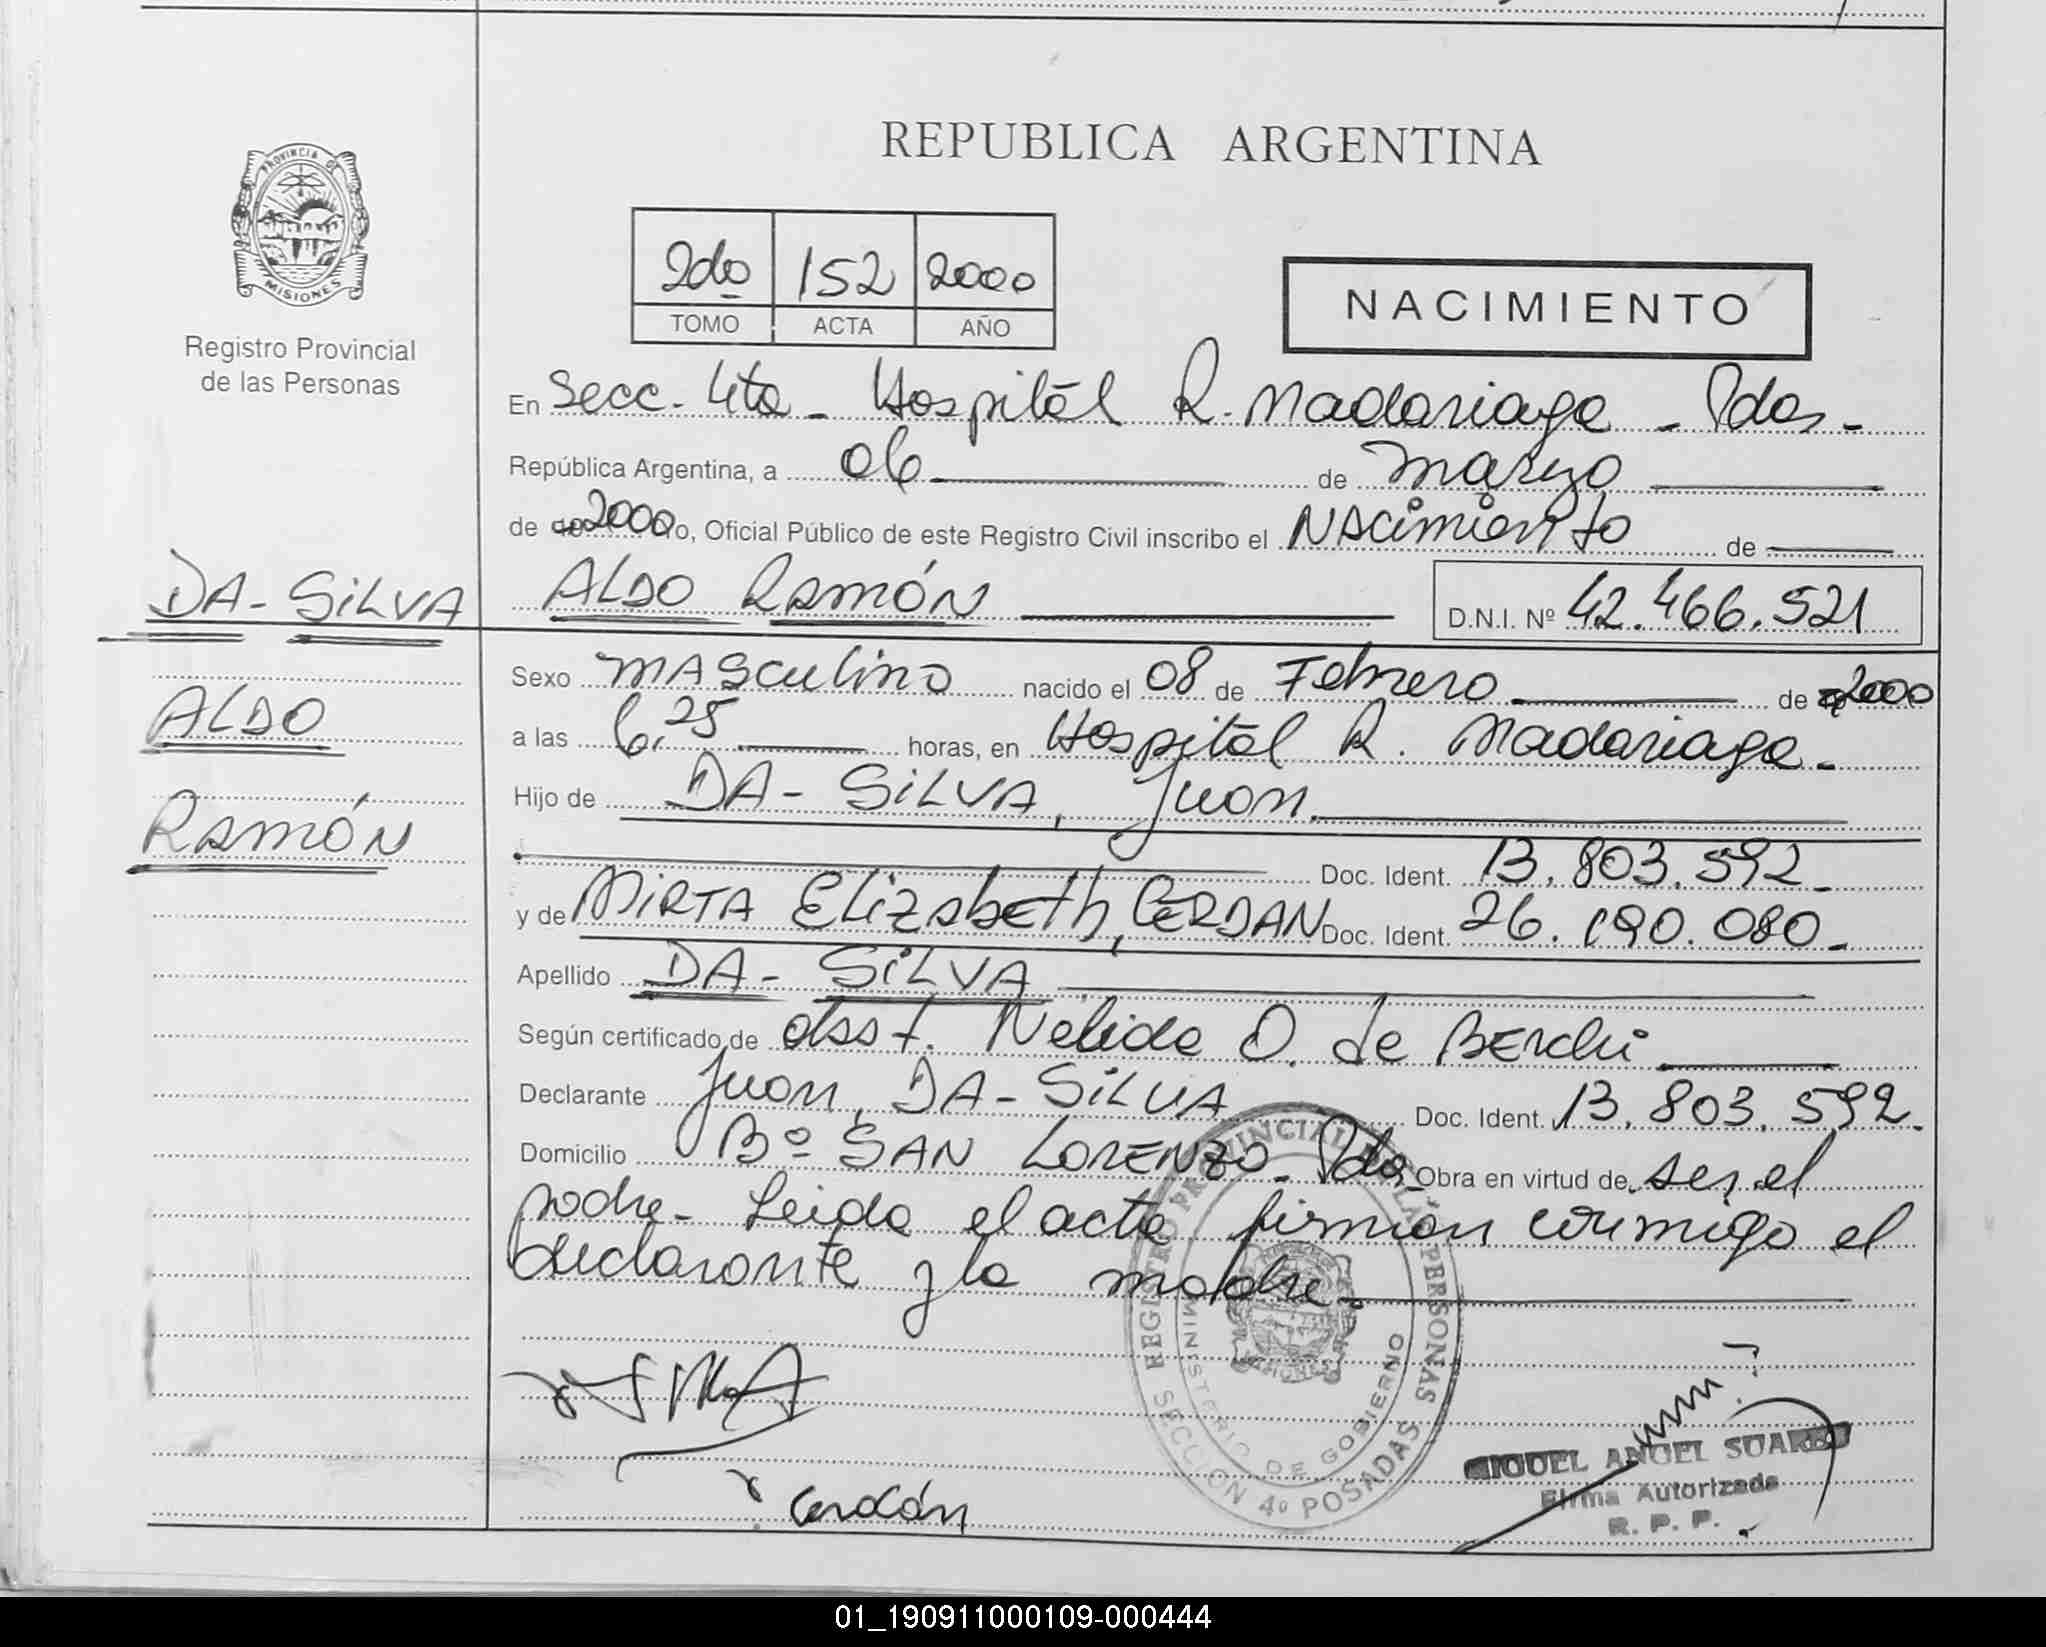 REPUBLICA ARGENTINA
PROVINCIA DE
MISIONES
Registro Provincial
de las Personas
2do 152 2000
TOMO ACTA AÑO
NACIMIENTO
En Secc. 4ta - Hospital R. Madariaga - Pdas -
República Argentina, a 06 de Marzo
de 2000 yo, Oficial Público de este Registro Civil inscribo el NAcimiento de
DA-SiLVA ALDO RAMÓN D.N.I. Nº 42.466.521
Sexo MASculino nacido el 08 de Febrero de 2000
ALDO
a las 6,25 horas, en Hospital R. Madariaga -
RAMÓN
Hijo de DA-SiLVA, Juan
Doc. Ident. 13.803.592
y de MiRTA ElizabETh, CERDAN Doc. Ident. 26.190.080 -
Apellido DA-SiLVA
Según certificado de obst. Nelida O. de BERchi
Declarante Juan, DA-SiLVA Doc. Ident. 13.803.592.
Domicilio Bº SAN LORENZO - Pdas Obra en virtud de ser el
padre - Leida el acta firman conmigo el
declarante y la madre.
REGISTRO PROVINCIAL DE LAS PERSONAS
MINISTERIO DE GOBIERNO
SECCION 4º POSADAS
MISIONES
Cerdán
MIGUEL ANGEL SUAREZ
Firma Autorizada
R. P. P.
01_190911000109-000444